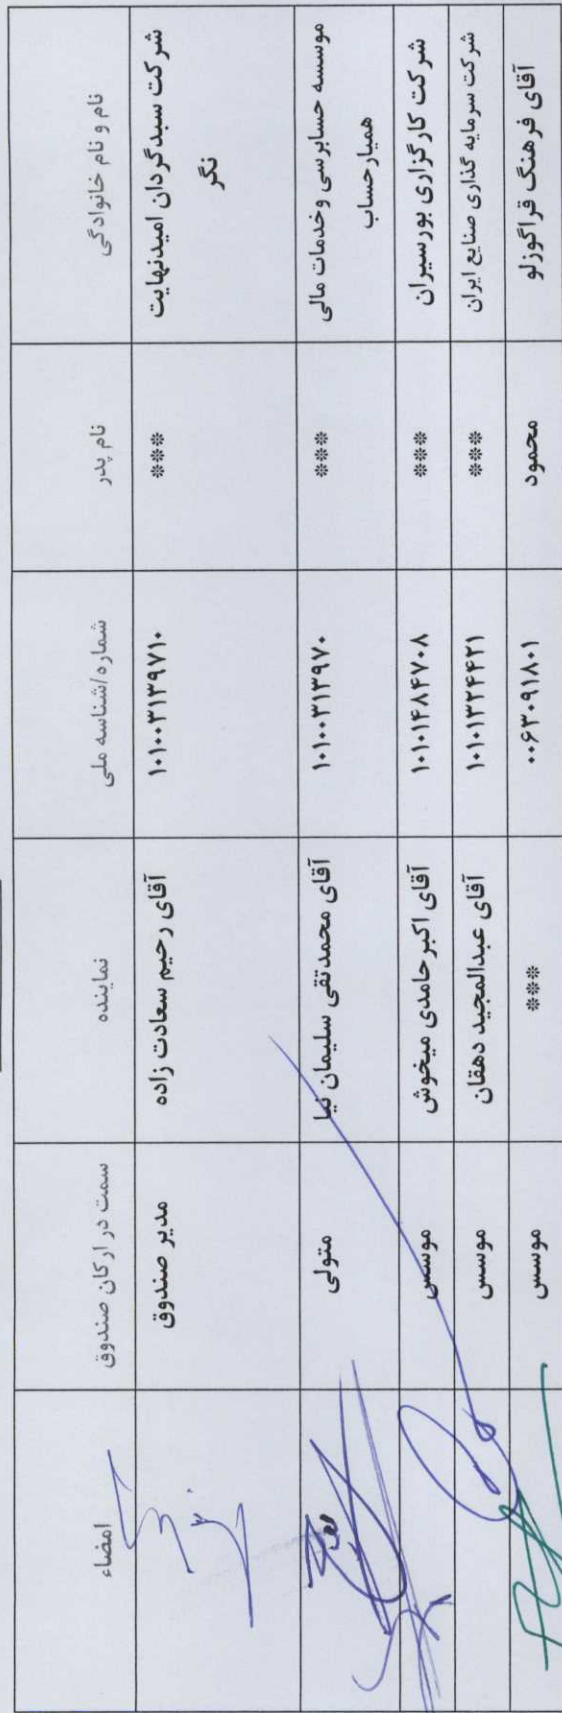 نام و نام خانوادگی
نام پدر
شماره/شناسه ملی
نماینده
سمت در ارکان صندوق
امضاء
شرکت سبدگردان امیدنهایت
نگر
***
۱۰۱۰۰۳۱۳۹۷۱۰
آقای رحیم سعادت زاده
مدیر صندوق
موسسه حسابرسی وخدمات مالی
همیارحساب
***
۱۰۱۰۰۳۱۳۹۷۰
آقای محمدتقی سلیمان نیا
متولی
شرکت کارگزاری بورسیران
***
۱۰۱۰۱۴۸۴۷۰۸
آقای اکبر حامدی میخوش
موسس
شرکت سرمایه گذاری صنایع ایران
***
۱۰۱۰۱۳۲۴۴۲۱
آقای عبدالمجید دهقان
موسس
آقای فرهنگ قراگوزلو
محمود
۰۰۶۳۰۹۱۸۰۱
***
موسس